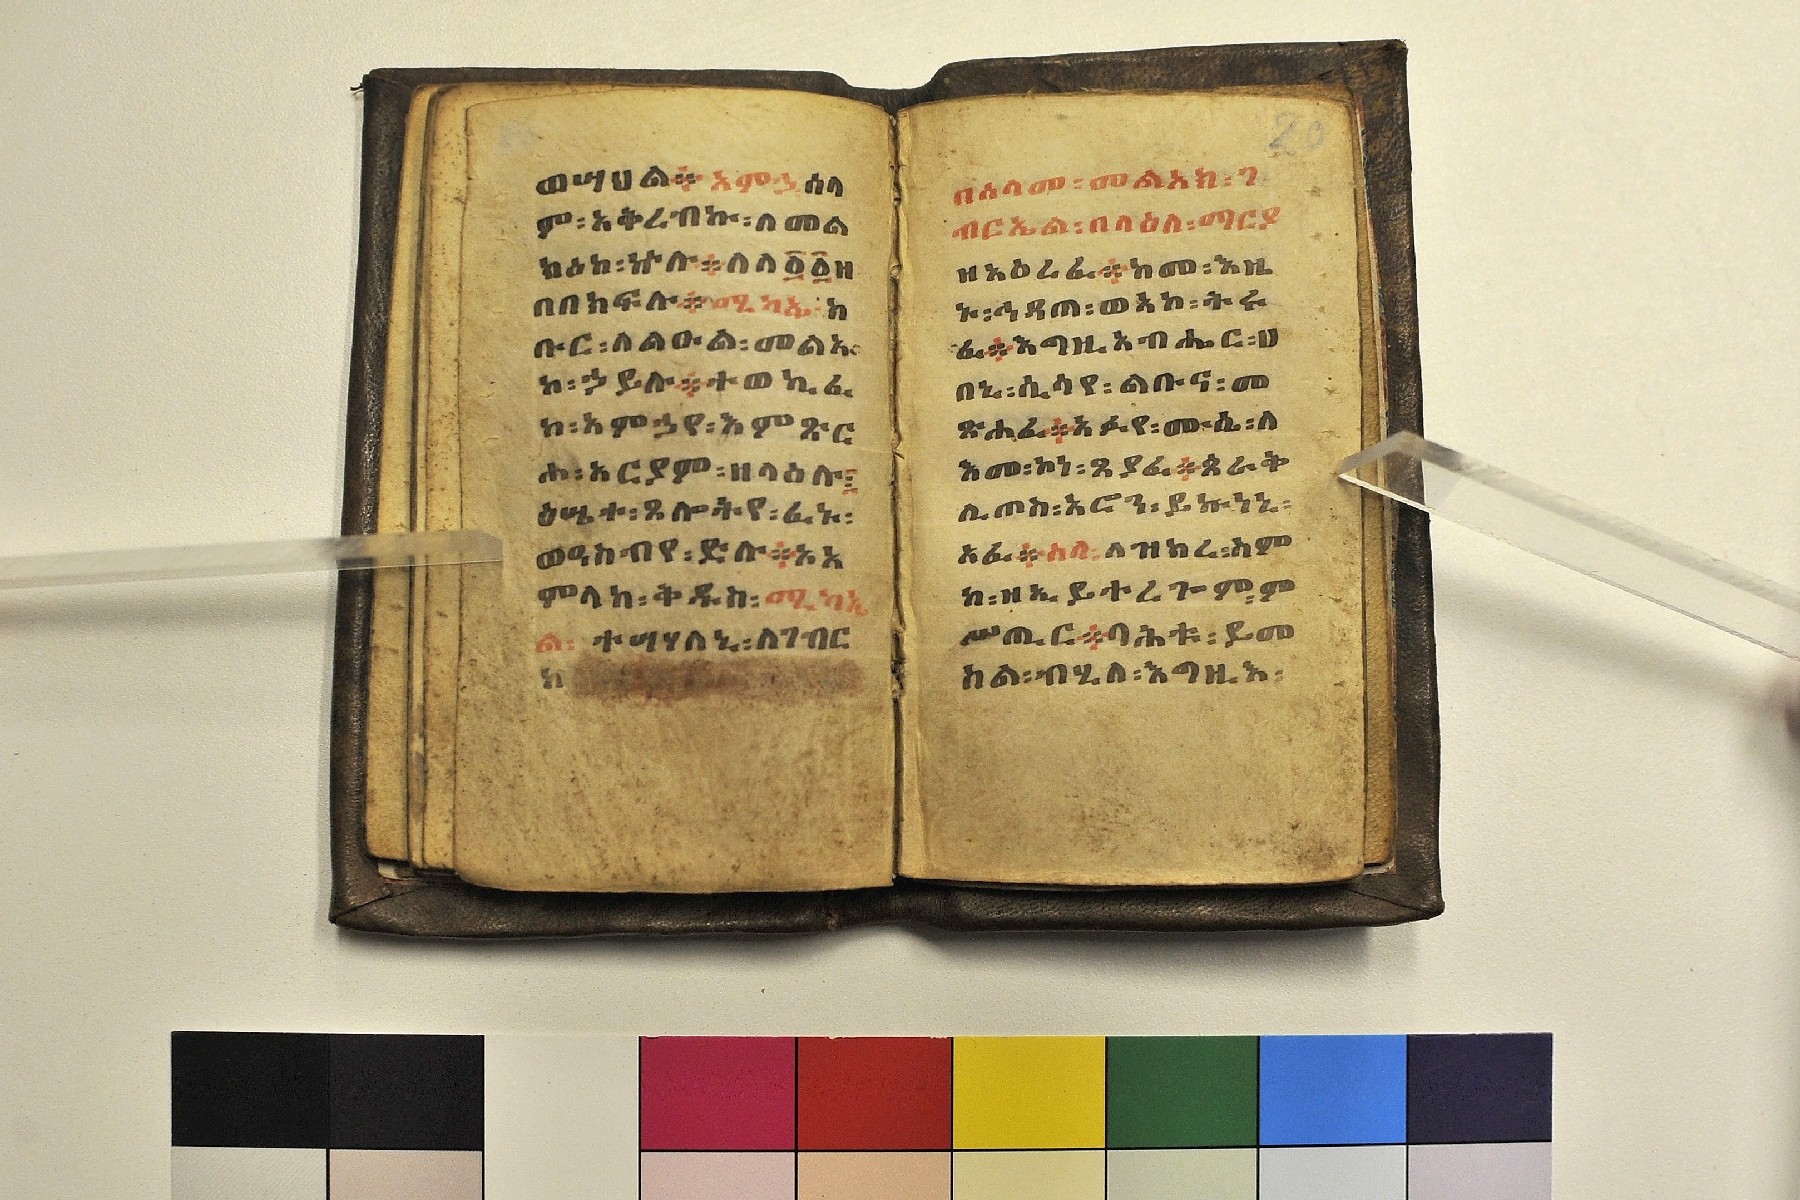 ወሣህል፨አምኃ፡ሰላ
ም፡አቅረብኩ፡ለመል
ክዕከ፡ኵሉ፨ለለ፩፩ዘ
በበክፍሉ፨ሚካኤ፡ክ
ቡር፡ለልዑል፡መልአ
ከ፡ኃይሉ፨ተወኪፈ
ከ፡አምኃየ፡እምጽር
ሐ፡አርያም፡ዘላዕሉ፤
ዕሤተ፡ጸሎትየ፡ፈኑ፡
ወዓስብየ፡ድሉ፨አአ
ምላከ፡ቅዱስ፡ሚካኤ
ል፡ ተሣሃለኒ፡ለገብር
ከ
20
በሰላመ፡መልአክ፡ገ
ብርኤል፡በላዕለ፡ማርያ
ዘአዕረፈ፨ከመ፡እዜ
ኑ፡ኅዳጠ፡ወአኮ፡ትሩ
ፈ፨እግዚአብሔር፡ሀ
በኒ፡ሲሳየ፡ልቡና፡መ
ጽሐፈ፨አፉየ፡ሙሴ፡ለ
እመ፡ኮነ፡ጸያፈ፨ጰራቅ
ሊጦስ፡አሮን፡ይኩነኒ፡
አፈ፨ሰላ፡ለዝክረ፡ስም
ከ፡ዘኢይተረጐም፡ም
ሥጢር፨ባሕቱ፡ይመ
ስል፡ብሂለ፡እግዚእ፡